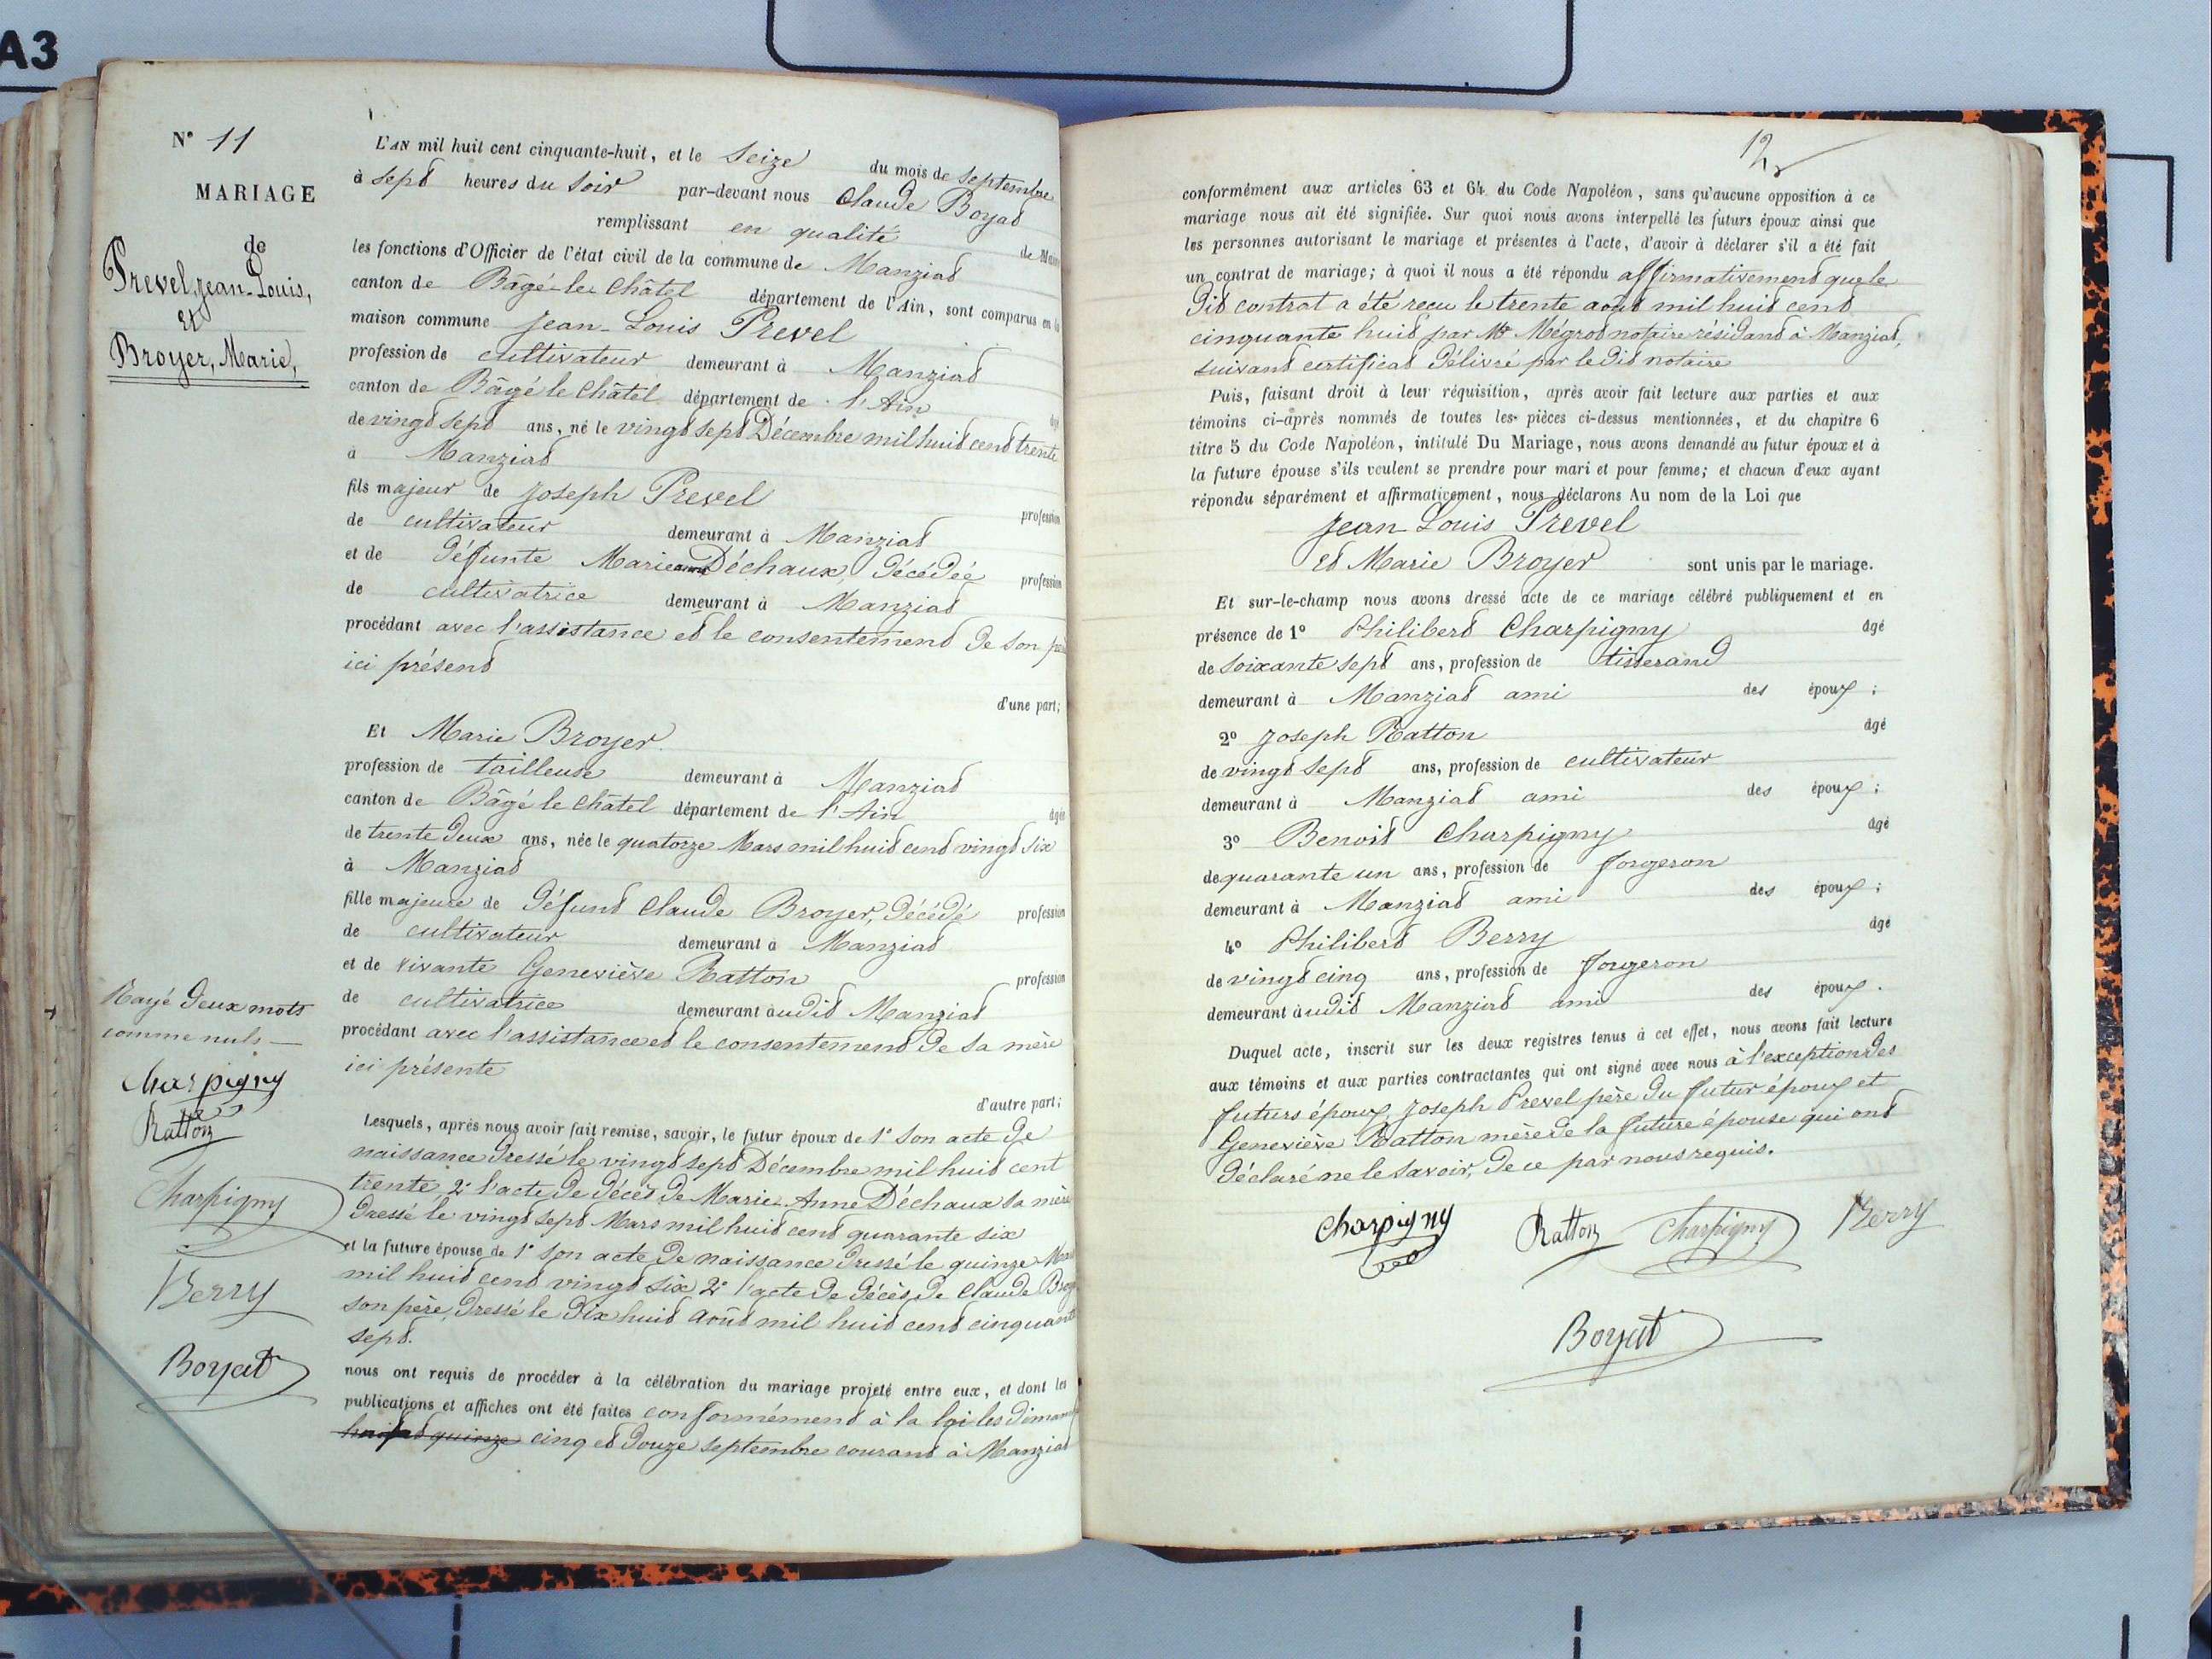 A3
N° 11
MARIAGE
de
Prevel, Jean-Louis,
Et
Broyer, Marie,
Rayé deux mots
comme nuls
Charpigny
Ratton
Charpigny
Berry
Boyat
L'AN mil huit cent cinquante-huit, et le Seize du mois de Septembre
à sept heures du soir par-devant nous Claude Boyat
remplissant en qualité de
les fonctions d'Officier de l'état civil de la commune de Manziat
canton de Bâgé-le-Châtel département de l'Ain, sont comparus en la
maison commune Jean-Louis Prevel
profession de cultivateur demeurant à Manziat
canton de Bâgé le Châtel département de l'Ain âgé
de vingt sept ans, né le vingt sept Décembre mil huit cent trente
à Manziat
fils majeur de Joseph Prevel profession
de cultivateur demeurant à Manziat
et de défunte Marie anne Déchaux, décédée profession
de cultivatrice demeurant à Manziat
procédant avec l'assistance et le consentement de son père
ici présent
d'une part;
Et Marie Broyer
profession de tailleuse demeurant à Manziat
canton de Bâgé le Châtel département de l'Ain âgée
de trente deux ans, née le quatorze Mars mil huit cent vingt six
à Manziat
fille majeure de défunt Claude Broyer, décédé profession
de cultivateur demeurant à Manziat
et de vivante Geneviève Ratton profession
de cultivatrice demeurant audit Manziat
procédant avec l'assistance et le consentement de sa mère
ici présente
d'autre part;
Lesquels, après nous avoir fait remise, savoir, le futur époux de 1° son acte de
naissance dressé le vingt sept Décembre mil huit cent
trente 2° l'acte de décès de Marie-Anne Déchaux sa mère
dressé le vingt sept Mars mil huit cent quarante six
et la future épouse de 1° son acte de naissance dressé le quinze Mars
mil huit cent vingt six 2° l'acte de décès de Claude Broyer
son père, dressé le dix huit août mil huit cent cinquante
sept.
nous ont requis de procéder à la célébration du mariage projeté entre eux, et dont les
publications et affiches ont été faites conformément à la loi les dimanches
huit et quinze cinq et douze septembre courant à Manziat
12
conformément aux articles 63 et 64 du Code Napoléon, sans qu'aucune opposition à ce
mariage nous ait été signifiée. Sur quoi nous avons interpellé les futurs époux ainsi que
les personnes autorisant le mariage et présentes à l'acte, d'avoir à déclarer s'il a été fait
un contrat de mariage; à quoi il nous a été répondu affirmativement que le
dit contrat a été reçu le trente août mil huit cent
cinquante huit par Me Mégrot notaire résidant à Manziat,
suivant certificat délivré par le dit notaire
Puis, faisant droit à leur réquisition, après avoir fait lecture aux parties et aux
témoins ci-après nommés de toutes les pièces ci-dessus mentionnées, et du chapitre 6
titre 5 du Code Napoléon, intitulé Du Mariage, nous avons demandé au futur époux et à
la future épouse s'ils veulent se prendre pour mari et pour femme; et chacun d'eux ayant
répondu séparément et affirmativement, nous déclarons Au nom de la Loi que
Jean Louis Prevel
et Marie Broyer sont unis par le mariage.
Et sur-le-champ nous avons dressé acte de ce mariage célébré publiquement et en
présence de 1° Philibert Charpigny âgé
de soixante sept ans, profession de tisserand
demeurant à Manziat ami des époux;
2° Joseph Ratton âgé
de vingt sept ans, profession de cultivateur
demeurant à Manziat ami des époux;
3° Benoit Charpigny âgé
de quarante un ans, profession de forgeron
demeurant à Manziat ami des époux;
4° Philibert Berry âgé
de vingt cinq ans, profession de forgeron
demeurant audit Manziat ami des époux.
Duquel acte, inscrit sur les deux registres tenus à cet effet, nous avons fait lecture
aux témoins et aux parties contractantes qui ont signé avec nous à l'exception des
futurs époux, Joseph Prevel père du futur époux et
Geneviève Ratton mère de la future épouse qui ont
déclaré ne le savoir, de ce par nous requis.
Charpigny Ratton Charpigny Berry
Boyat